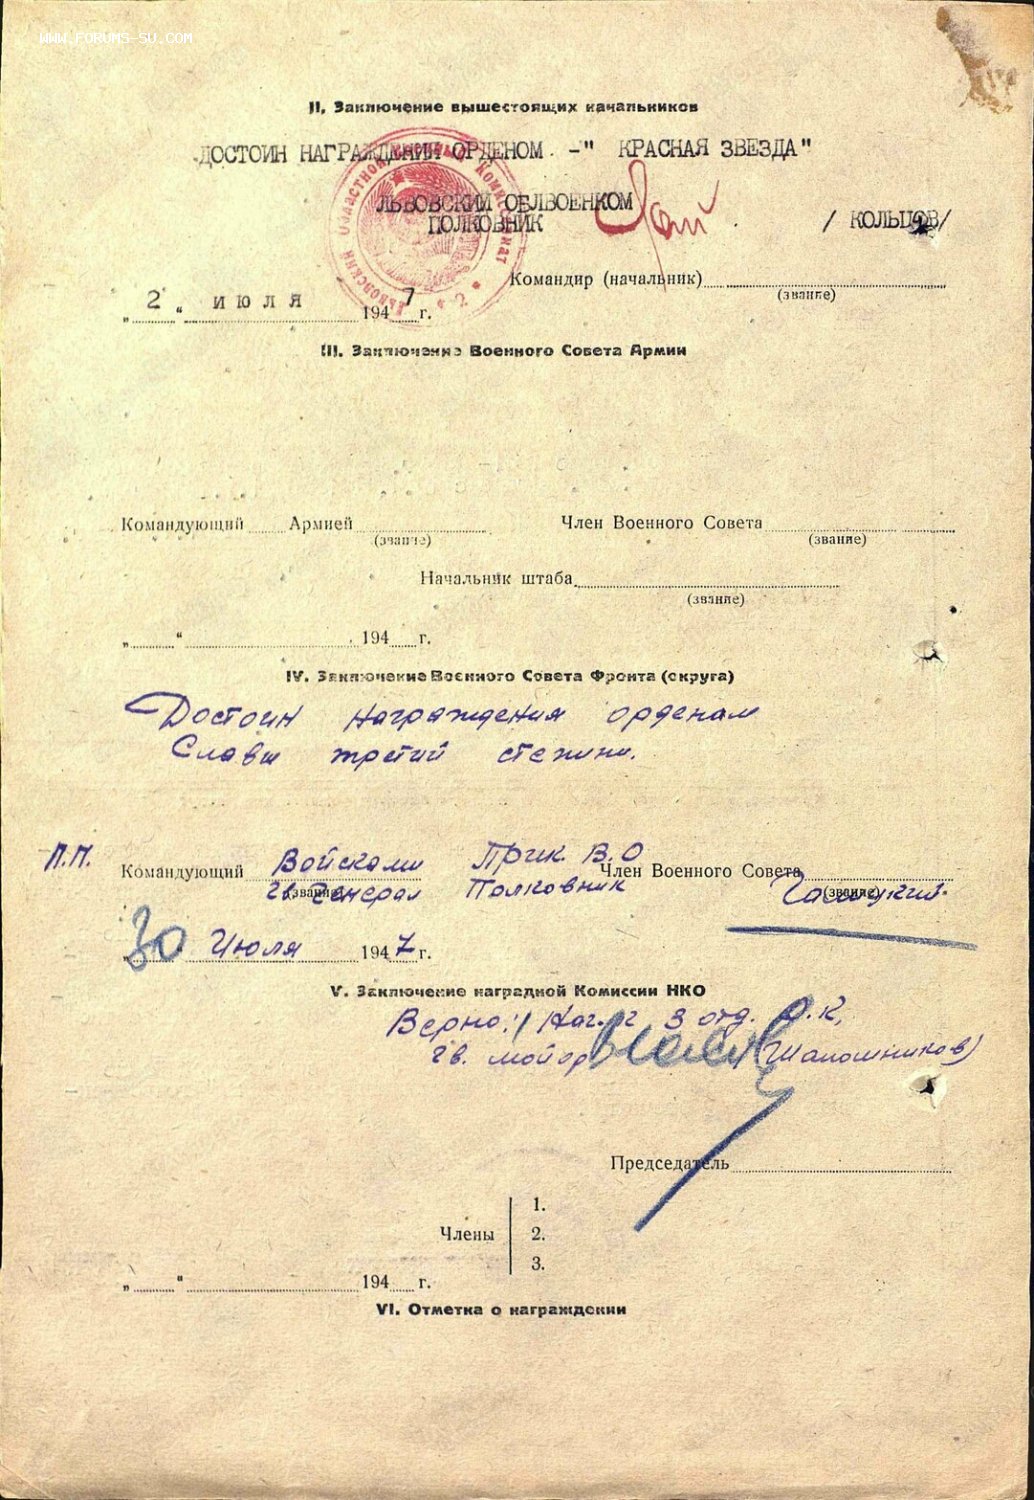 WWW.FORUMS-SU.COM
II. Заключение вышестоящих начальников
ДОСТОИН НАГРАЖДЕНИИ ОРДЕНОМ -" КРАСНАЯ ЗВЕЗДА"
ЛЬВОВСКИЙ ОБЛВОЕНКОМ
ПОЛКОВНИК / КОЛЬЦОВ/
Командир (начальник)
(звание)
„ 2 “ июля 1947 г.
III. Заключение Военного Совета Армии
Командующий Армией Член Военного Совета
(звание) (звание)
Начальник штаба
(звание)
„ “ 194 г.
IV. Заключение Военного Совета Фронта (округа)
Достоин награждения орденам
Славы третий степини.
П.П. Командующий Войсками Прик. В.О Член Военного Совета
(звание) Гв. Генерал Полковник (звание)
„ 30 Июля 1947 г.
V. Заключение наградной Комиссии НКО
Верно: 3 отд. О.К,
гв. майор (Шапошников)
Председатель
1.
Члены 2.
3.
„ “ 194 г.
VI. Отметка о награждении